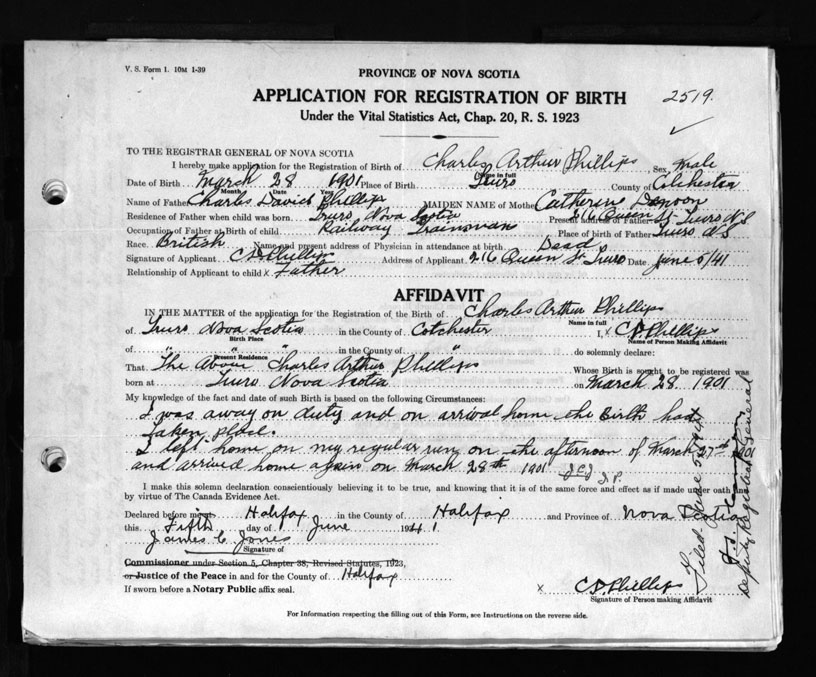 V. S. Form 1. 10M 1-39
PROVINCE OF NOVA SCOTIA
APPLICATION FOR REGISTRATION OF BIRTH 2519.
Under the Vital Statistics Act, Chap. 20, R. S. 1923
TO THE REGISTRAR GENERAL OF NOVA SCOTIA
I hereby make application for the Registration of Birth of Charles Arthur Phillips Sex male
Name in full
Date of Birth March 28 1901 Place of Birth Truro County of Colchester
Month Date Year
Name of Father Charles David Phillips MAIDEN NAME of Mother Catherine
Residence of Father when child was born Truro Nova Scotia Present address of Father 216 Queen St Truro N S
Occupation of Father at Birth of child Railway Trainman Place of birth of Father Truro N S
Race British Name and present address of Physician in attendance at birth Dead
Signature of Applicant C D Phillips Address of Applicant 216 Queen St Truro Date June 5/41
Relationship of Applicant to child x Father
AFFIDAVIT
IN THE MATTER of the application for the Registration of the Birth of Charles Arthur Phillips
Name in full
of Truro Nova Scotia in the County of Colchester I, x C D Phillips
Birth Place Name of Person Making Affidavit
of " " " in the County of " do solemnly declare:
Present Residence
That The Above Charles Arthur Phillips Whose Birth is sought to be registered was
born at Truro Nova Scotia on March 28 1901
My knowledge of the fact and date of such Birth is based on the following Circumstances:
I was away on duty and on arrival home the Birth had
taken place.
I left home on my regular run on the afternoon of March 27th 1901
and arrived home again on March 28th 1901 J C J J. P.
I make this solemn declaration conscientiously believing it to be true, and knowing that it is of the same force and effect as if made under oath and
by virtue of The Canada Evidence Act.
Declared before me at Halifax in the County of Halifax and Province of Nova Scotia
this Fifth day of June 1941
James C Jones
Signature of
Commissioner under Section 5, Chapter 38, Revised Statutes, 1923,
or Justice of the Peace in and for the County of Halifax
If sworn before a Notary Public affix seal.
x C D Phillips
Signature of Person making Affidavit
For Information respecting the filling out of this Form, see Instructions on the reverse side.
Filed June 5 1941
Deputy Registrar General